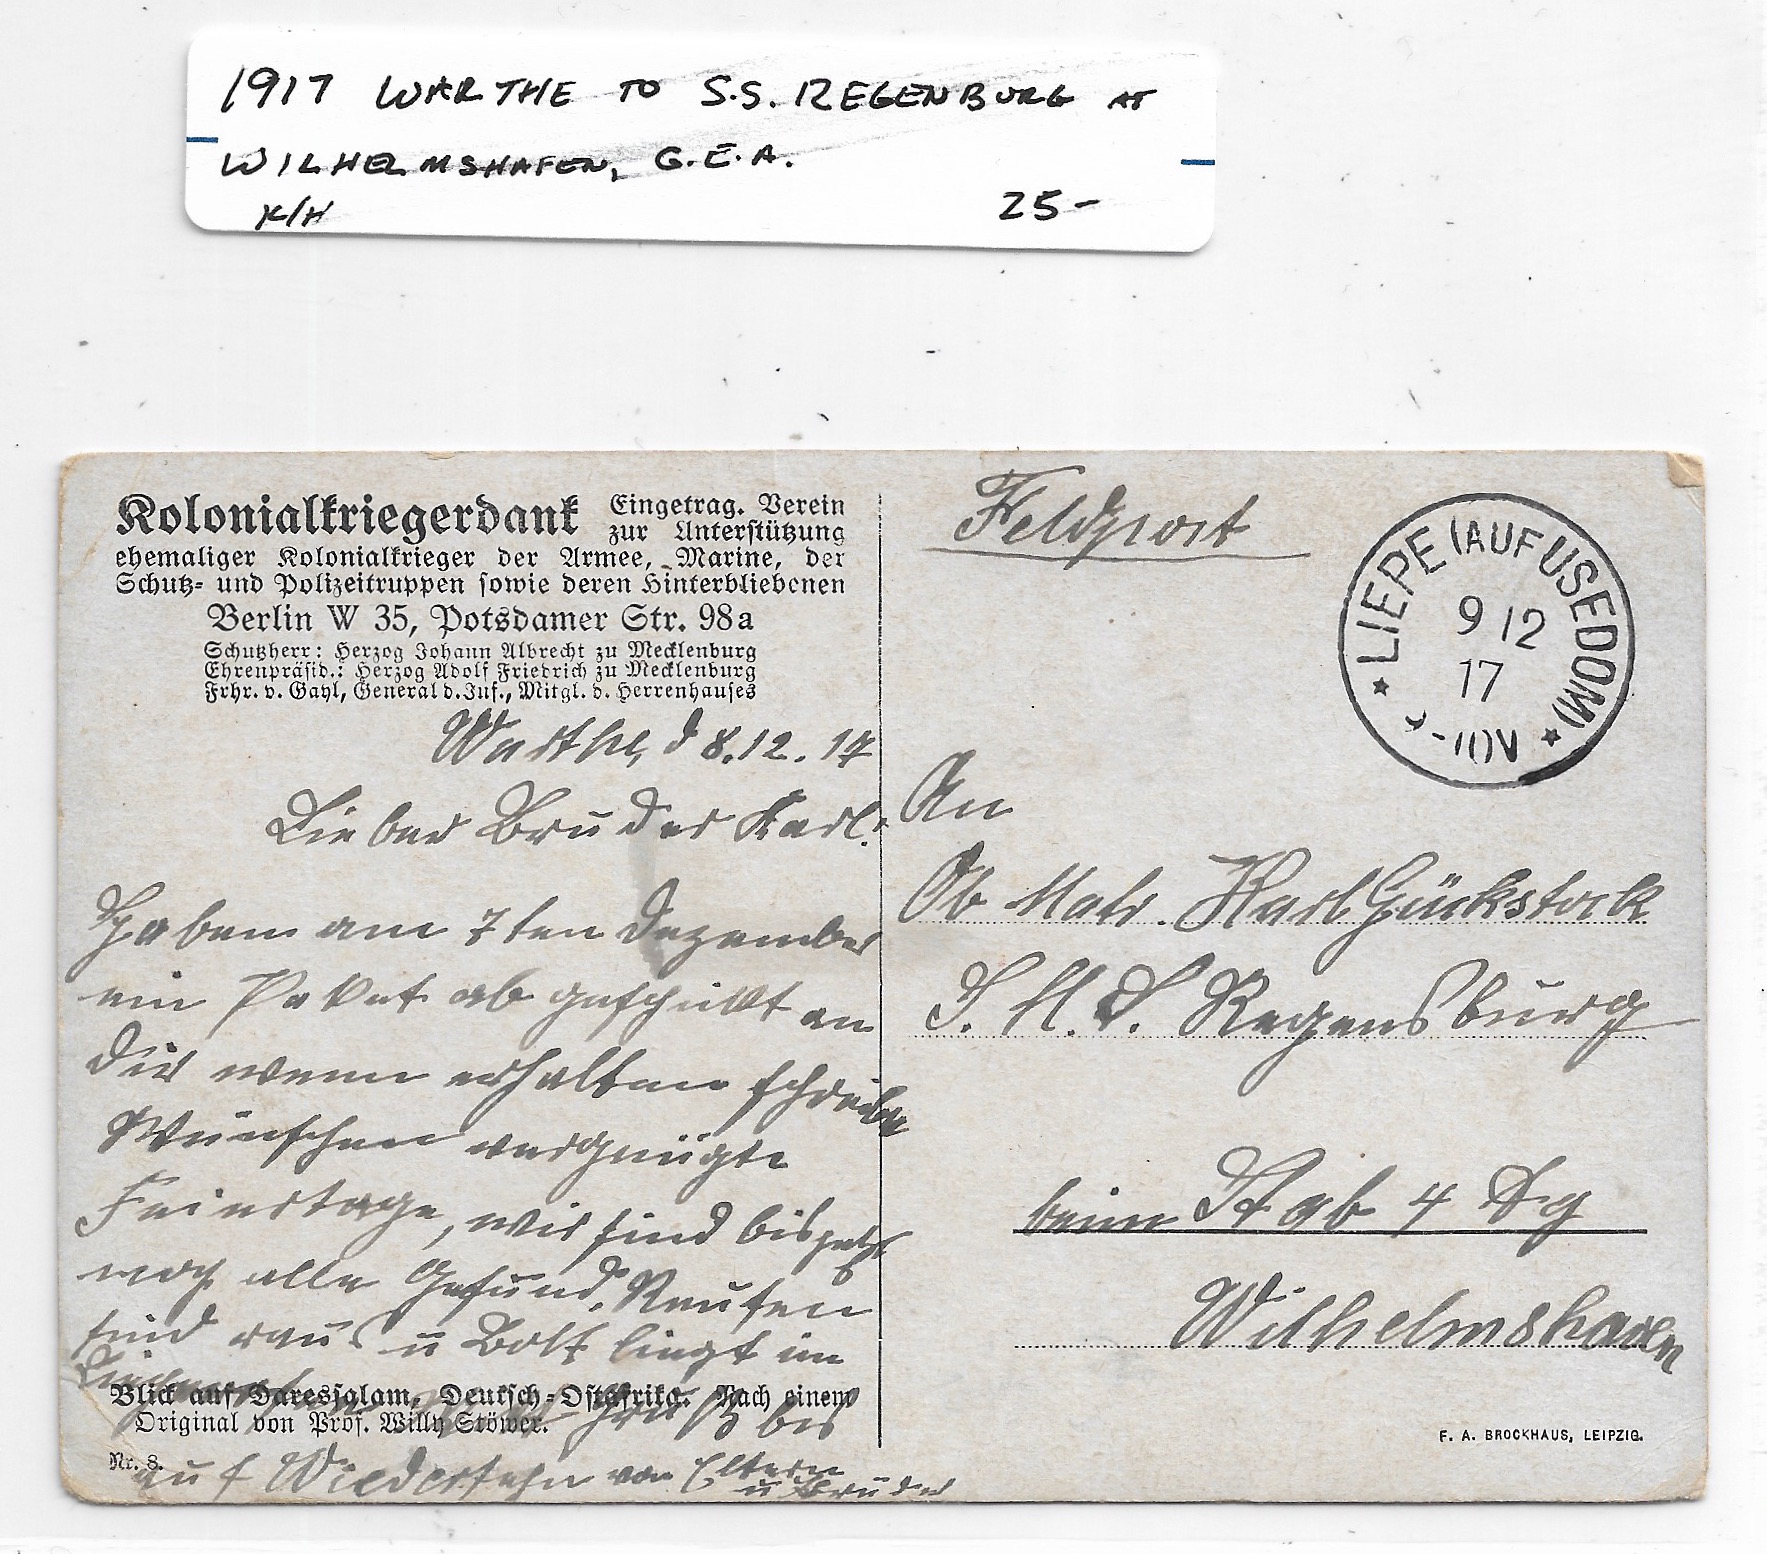 1917 WARTHE TO S.S. REGENBURG AT
WILHELMSHAFEN, G.E.A.
K/H 25-
Kolonialkriegerdank Eingetrag. Verein
zur Unterstützung
ehemaliger Kolonialkrieger der Armee, Marine, der
Schutz- und Polizeitruppen sowie deren Hinterbliebenen
Berlin W 35, Potsdamer Str. 98a
Schutzherr: Herzog Johann Albrecht zu Mecklenburg
Ehrenpräsid.: Herzog Adolf Friedrich zu Mecklenburg
Frhr. v. Gayl, General d. Inf., Mitgl. d. Herrenhauses
Warthe, d 8.12.17
Lieber Bruder Karl!
Haben am 7ten Dezember
ein Paket abgeschickt an
Dir wenn erhalten schreibe
Wünschen vergnügte
Feiertage, wir sind bis jetzt
noch alle Gesund. Reusen
sind raus u Bolt liegt im
Gruß bis
auf Wiedersehn von Eltern
u Bruder
Blick auf Daressalam, Deutsch-Ostafrika. Nach einem
Original von Prof. Willy Stöwer.
Nr. 8.
Feldpost
LIEPE (AUF USEDOM)
9 12
17
-10V
An
Ob Matr. Karl Gückstock
S. M. S. Regensburg
beim Stab 4 Ag
Wilhelmshaven
F. A. BROCKHAUS, LEIPZIG.